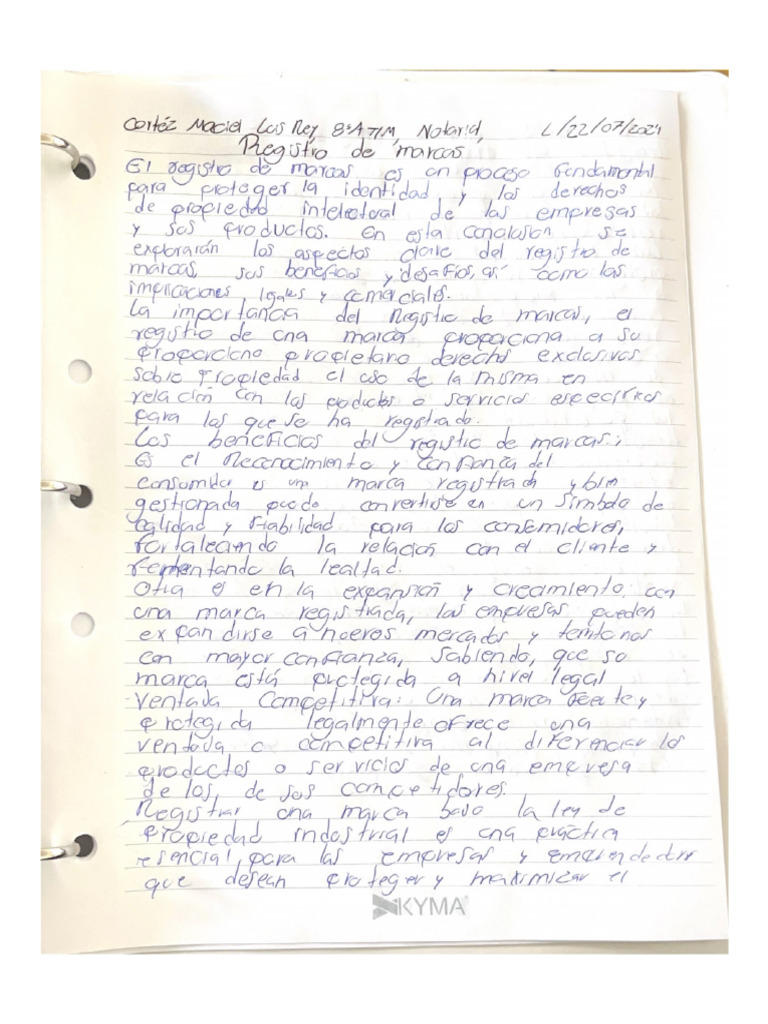 Cortéz Maciel Luis Rey 8°A T/M, Notarial, L/22/07/2024
Registro de marcas
El registro de marcas es un proceso fundamental
para proteger la identidad y los derechos
de propiedad intelectual de las empresas
y sus productos. En esta conclusion se
explorarán los aspectos clave del registro de
marcas, sus beneficios y desafios, asi como las
implicaciones legales y comerciales.
La importancia del Registro de marcas, el
registro de una marca proporciona a su
proporciono propietario derechos exclusivos
sobre propiedad el uso de la misma en
relación con los productos o servicios especificos
para los que se ha registrado.
Los beneficios del registro de marcas:
Es el Reconocimiento y confianza del
consumidor es una marca registrada y bien
gestionada puede convertirse en un simbolo de
calidad y fiabilidad para los consumidores,
fortaleciendo la relación con el cliente y
fomentando la lealtad.
Otra es en la expansión y crecimiento: con
una marca registrada, las empresas pueden
expandirse a nuevos mercados y territorios
con mayor confianza, sabiendo, que su
marca está protegida a nivel legal
Ventada Competitiva: Una marca fuerte y
protegida legalmente ofrece una
ventada competitiva al diferenciar los
productos o servicios de una empresa
de los, de sus competidores.
Registrar una marca bajo la ley de
propiedad industrial es una práctica
esencial, para las empresas y emprendedores
que desean proteger y maximizar el
KYMA